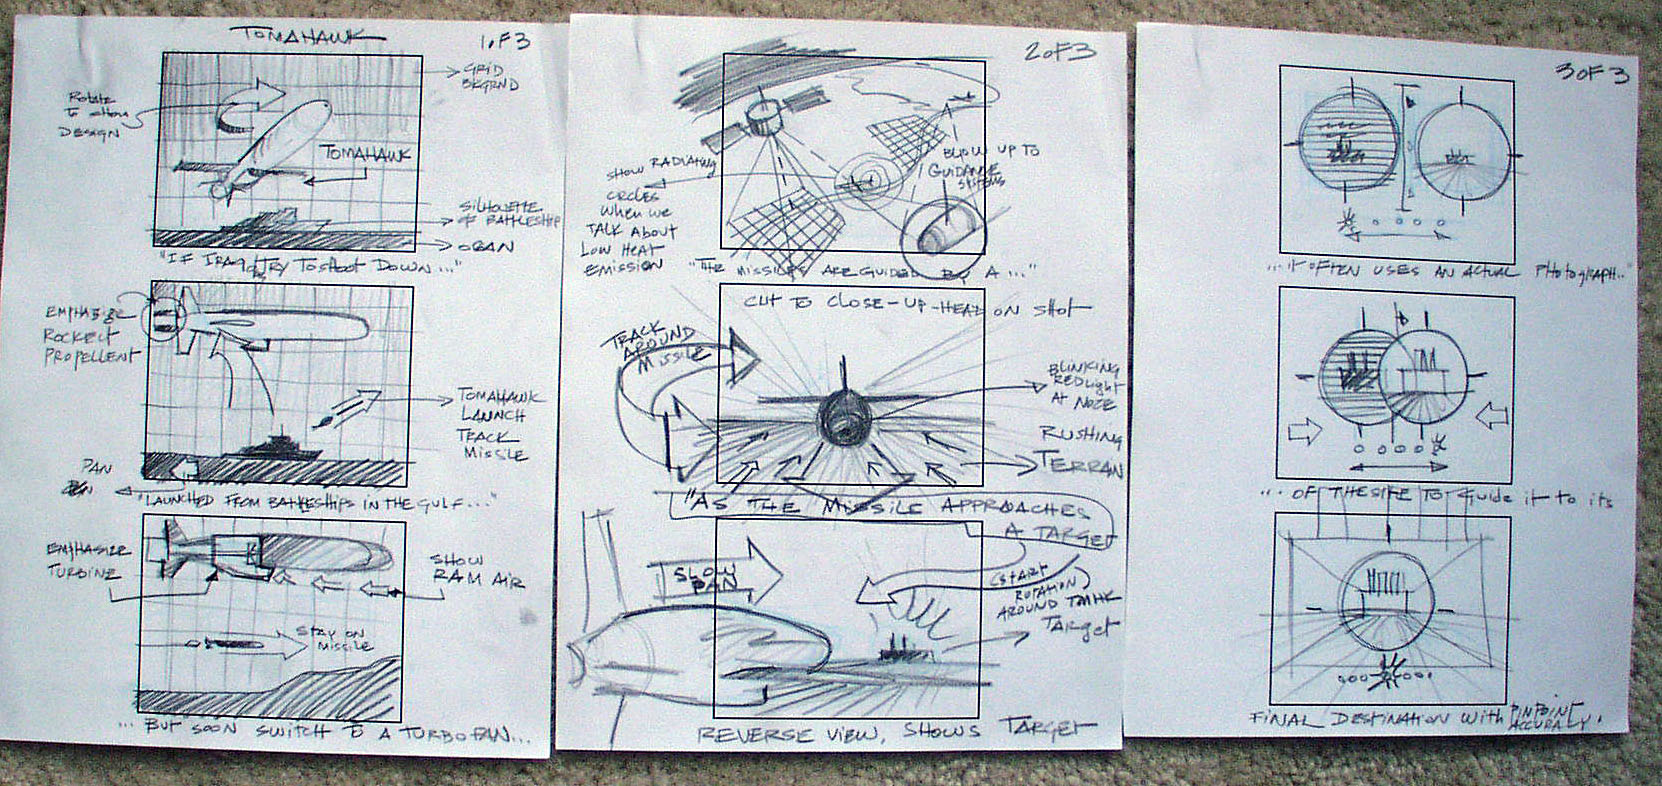 TOMAHAWK
1 OF 3
GRID
BKGRND
ROTATE
TO SHOW
DESIGN
TOMAHAWK
SILHOUETTE
OF BATTLESHIP
OCEAN
"IF IRAQ TRY TO SHOOT DOWN..."
EMPHASIZE
ROCKELT
PROPELLENT
TOMAHAWK
LAUNCH
TRACK
MISSLE
PAN
"LAUNCHED FROM BATTLESHIPS IN THE GULF..."
EMPHASIZE
TURBINE
SHOW
RAM AIR
STAY ON
MISSILE
... BUT SOON SWITCH TO A TURBOFAN...
2 OF 3
SHOW RADIATING
CIRCLES
WHEN WE
TALK ABOUT
LOW HEAT
EMISSION
BLOW UP TO
GUIDANCE
SYSTEMS
"THE MISSILES ARE GUIDED BY A..."
CUT TO CLOSE-UP-HEAD ON SHOT
TRACK
AROUND
MISSILE
BLINKING
RED LIGHT
AT NOZE
RUSHING
TERRAN
"AS THE MISSILE APPROACHES
A TARGET
SLOW
PAN
(START
ROTATION)
AROUND
TARGET
REVERSE VIEW, SHOWS TARGET
3 OF 3
...IT OFTEN USES AN ACTUAL PHOTOGRAPH.."
"... OF THE SITE TO GUIDE IT TO ITS
FINAL DESTINATION WITH PINPOINT
ACCURACY.